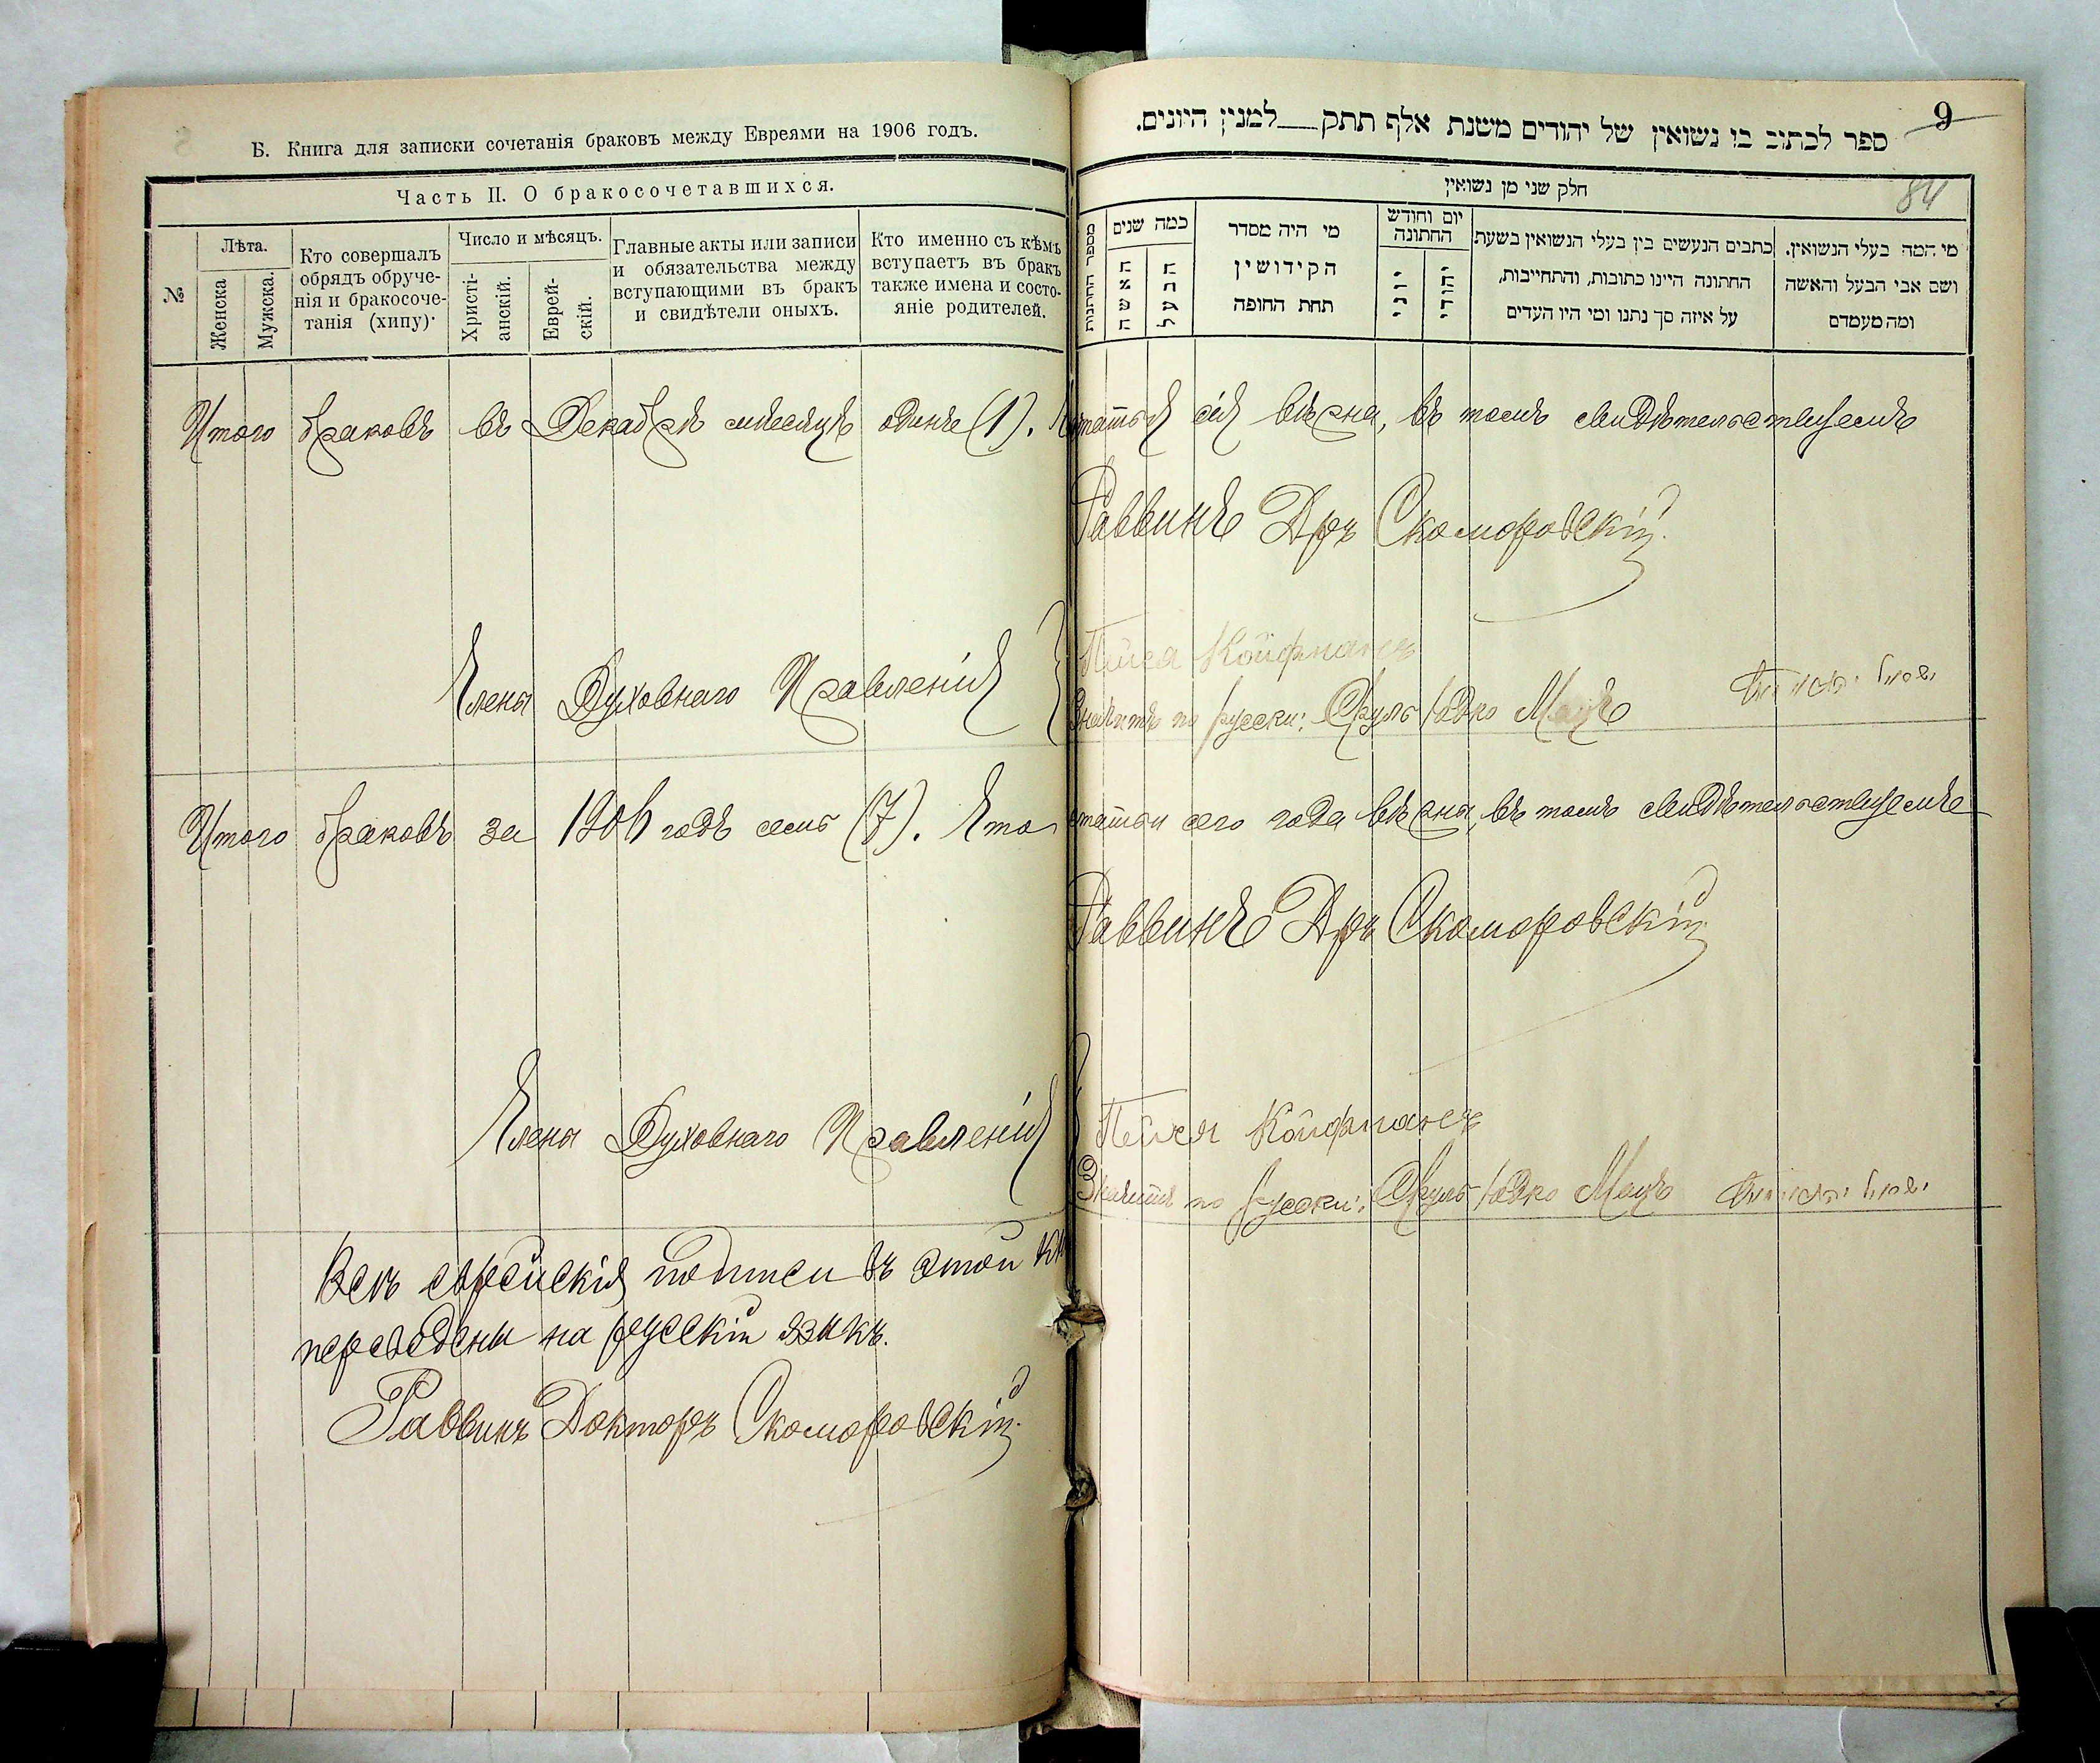 Б. Книга для записки сочетанія браковъ между Евреями на 1906 годъ.
Часть II. О бракосочетавшихся.
№
Лѣта.
Женска
Мужска.
Кто совершалъ
обрядъ обруче-
нія и бракосоче-
танія (хипу)·
Число и мѣсяцъ.
Христі-
анскій.
Еврей-
скій.
Главные акты или записи
и обязательства между
вступающими въ бракъ
и свидѣтели оныхъ.
Кто именно съ кѣмъ
вступаетъ въ бракъ
также имена и состо-
яніе родителей.
9
ספר לכתוב בו נשואין של יהודים משנת אלף תתק__למנין היונים.
84
חלק שני מן נשואין
מספר החתונות
כמה שנים
האשה
הבעל
מי היה מסדר
הקידושין
תחת החופה
יום וחודש
החתונה
יוני
יהודי
כתבים הנעשים בין בעלי הנשואין בשעת
החתונה היינו כתובות, והתחייבות,
על איזה סך נתנו ומי היו העדים
מי המה בעלי הנשואין.
ושם אבי הבעל והאשה
ומה מעמדם
Итого браковъ въ Декабрѣ мѣсяцѣ одинъ (1). статья сія вѣрна, въ томъ свидѣтельствуемъ
Раввинъ Дръ Скоморовскій
Члены Духовнаго Правленія
Пейся Койфманъ
Значитъ по русски: Сруль Юдко Мацъ ישראל
Итого браковъ за 1906 годъ семь (7). Что статьи сего года вѣрны, въ томъ свидѣтельствуемъ
Раввинъ Дръ Скоморовскій
Члены Духовнаго Правленія
Пейся Койфманъ
Значитъ по русски: Сруль Юдко Мацъ ישראל
Всѣ еврейскія подписи въ этой кн
переведены на русскій языкъ.
Раввинъ Докторъ Скоморовскій